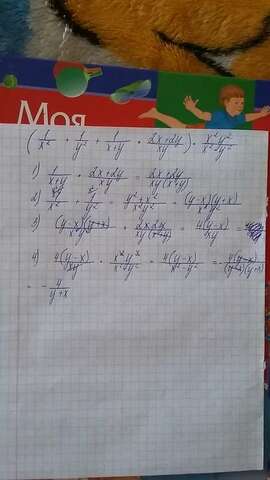 Моя
(1/x² + 1/y² + 1/x+y · 2x+2y/xy) · x²y²/x²-y²
1) 1/x+y · 2x+2y/xy = 2x+2y/xy(x+y)
2) 1/x² + 1/y² = y²+x²/x²y² = (y-x)(y+x)/x²y²
3) (y-x)(y+x)/x²y² · 2x2y/xy(x+y) = 4(y-x)/xy
4) 4(y-x)/xy · x²y²/x²-y² = 4(y-x)/x²-y² = -4(y-x)/(y-x)(y+x)
= - 4/y+x